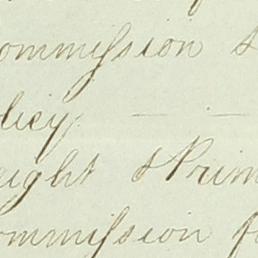 ommission &
licy
eight & Prim
ommission fo